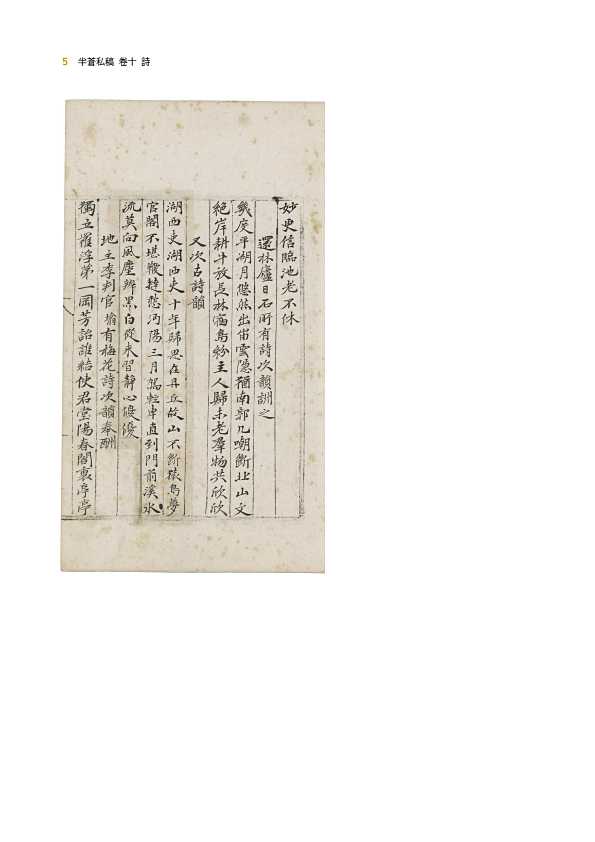 5 半蒼私稿 卷十 詩
妙更信臨池老不休
還林廬日石所有詩次韻詶之
幾度平湖月悠然出岫雲隱猶南郭几嘲斷北山文
絶岸耕牛放長林宿鳥紛主人歸未老羣物共欣欣
又次古詩韻
湖西吏湖西吏十年歸思在丹丘故山不斷猿鳥夢
官閣不堪鞭撻愁沔陽三月駕輕車直到門前溪水
流莫向風塵辨黑白從來習靜心優優
地主李判官 有梅花詩次韻奉酬
獨立羅浮第一岡芳詒誰結使君堂陽春閣裏亭亭